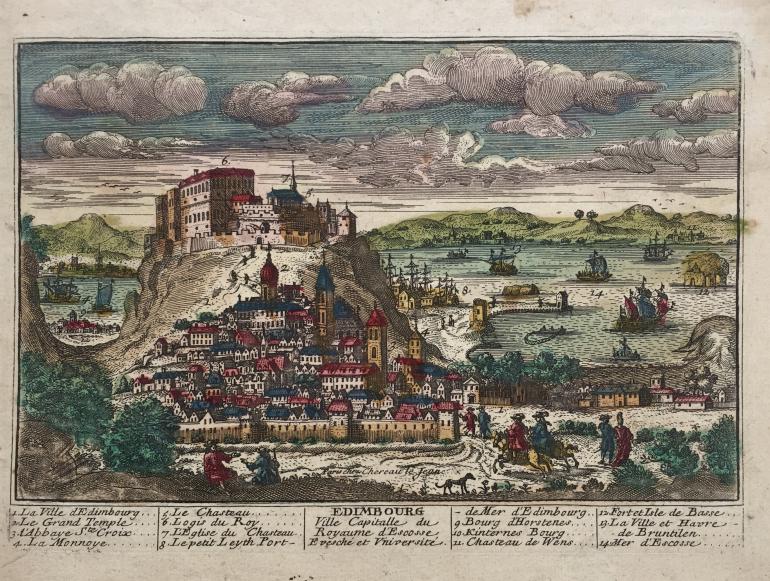 6.
7
5.
8.
14
13
A Paris chez Chereau le Jeune
1. La Ville d'Edimbourg
2. Le Grand Temple
3. l'Abbaye Ste. Croix
4. La Monnoye
5. Le Chasteau
6. Logis du Roy
7. l'Eglise du Chasteau
8. Le petit Leyth Port-
EDIMBOURG
Ville Capitalle du
Royaume d'Escosse
Evesché et Vniversité
- de Mer d'Edimbourg
9. Bourg d'Horstenes
10. Kinternes Bourg
11. Chasteau de Wens
12. Fort et Isle de Basse
13. La Ville et Havre
de Bruntilen
14. Mer d'Escosse